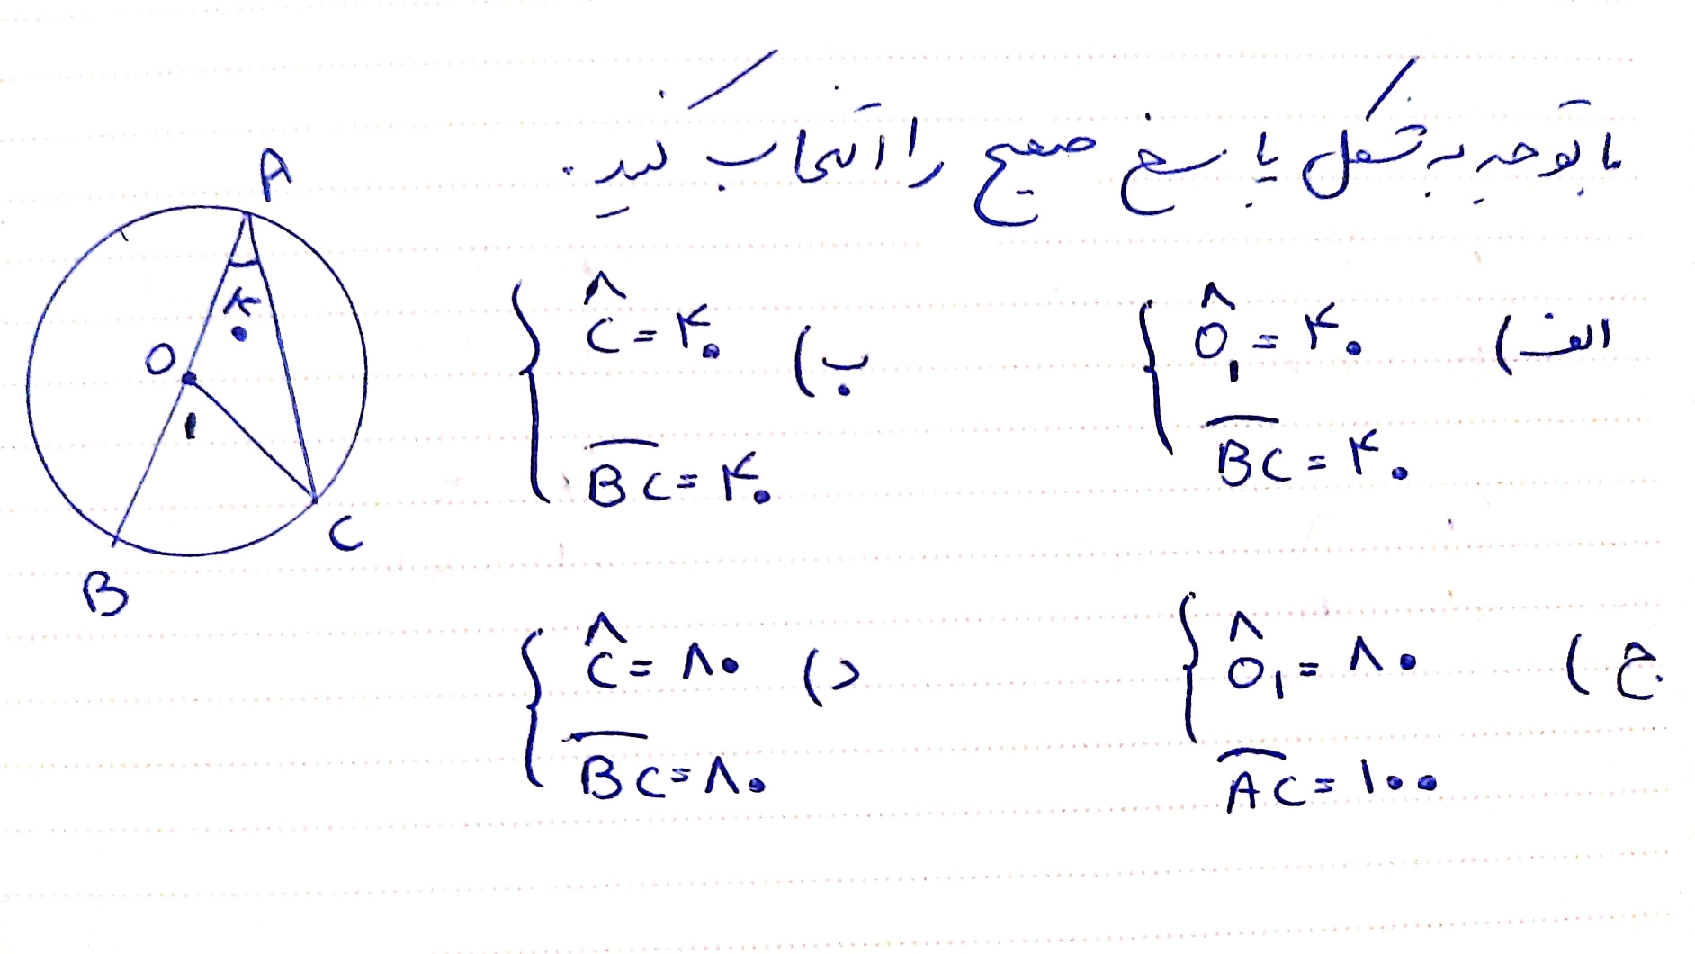 با توجه به شکل پاسخ صحیح را انتخاب کنید.
A
۴۰
O
۱
B
C
الف) Ô۱ = ۴۰
BC = ۴۰
ب) Ĉ = ۴۰
BC = ۴۰
ج) Ô۱ = ۸۰
AC = ۱۰۰
د) Ĉ = ۸۰
BC = ۸۰